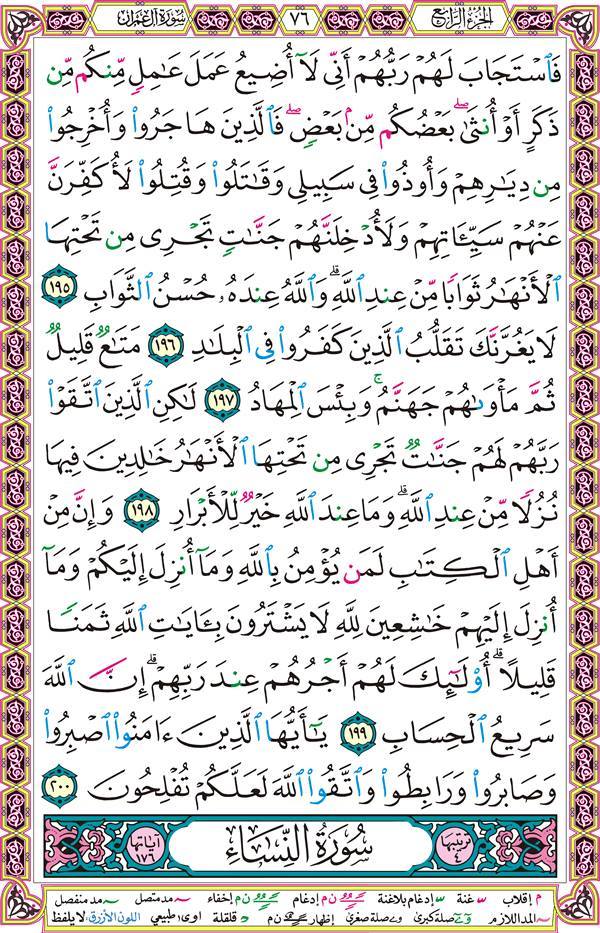 الجزء الرابع ٧٦ سورة آل عمران
فَٱسْتَجَابَ لَهُمْ رَبُّهُمْ أَنِّي لَآ أُضِيعُ عَمَلَ عَٰمِلٍ مِّنكُم مِّن
ذَكَرٍ أَوْ أُنثَىٰ ۖ بَعْضُكُم مِّنۢ بَعْضٍ ۖ فَٱلَّذِينَ هَاجَرُوا۟ وَأُخْرِجُوا۟
مِن دِيَٰرِهِمْ وَأُوذُوا۟ فِي سَبِيلِي وَقَٰتَلُوا۟ وَقُتِلُوا۟ لَأُكَفِّرَنَّ
عَنْهُمْ سَيِّـَٔاتِهِمْ وَلَأُدْخِلَنَّهُمْ جَنَّٰتٍ تَجْرِي مِن تَحْتِهَا
ٱلْأَنْهَٰرُ ثَوَابًا مِّنْ عِندِ ٱللَّهِ ۗ وَٱللَّهُ عِندَهُۥ حُسْنُ ٱلثَّوَابِ ١٩٥
لَا يَغُرَّنَّكَ تَقَلُّبُ ٱلَّذِينَ كَفَرُوا۟ فِي ٱلْبِلَٰدِ ١٩٦ مَتَٰعٌ قَلِيلٌ
ثُمَّ مَأْوَىٰهُمْ جَهَنَّمُ ۚ وَبِئْسَ ٱلْمِهَادُ ١٩٧ لَٰكِنِ ٱلَّذِينَ ٱتَّقَوْا۟
رَبَّهُمْ لَهُمْ جَنَّٰتٌ تَجْرِي مِن تَحْتِهَا ٱلْأَنْهَٰرُ خَٰلِدِينَ فِيهَا
نُزُلًا مِّنْ عِندِ ٱللَّهِ ۗ وَمَا عِندَ ٱللَّهِ خَيْرٌ لِّلْأَبْرَارِ ١٩٨ وَإِنَّ مِنْ
أَهْلِ ٱلْكِتَٰبِ لَمَن يُؤْمِنُ بِٱللَّهِ وَمَآ أُنزِلَ إِلَيْكُمْ وَمَآ
أُنزِلَ إِلَيْهِمْ خَٰشِعِينَ لِلَّهِ لَا يَشْتَرُونَ بِـَٔايَٰتِ ٱللَّهِ ثَمَنًا
قَلِيلًا ۗ أُو۟لَٰٓئِكَ لَهُمْ أَجْرُهُمْ عِندَ رَبِّهِمْ ۗ إِنَّ ٱللَّهَ
سَرِيعُ ٱلْحِسَابِ ١٩٩ يَٰٓأَيُّهَا ٱلَّذِينَ ءَامَنُوا۟ ٱصْبِرُوا۟
وَصَابِرُوا۟ وَرَابِطُوا۟ وَٱتَّقُوا۟ ٱللَّهَ لَعَلَّكُمْ تُفْلِحُونَ ٢٠٠
ترتيبها ٤ سُورَةُ النِّسَاءِ آياتها ١٧٦
م إقلاب غنة إدغام بلاغنة ن م إدغام ن م إخفاء مد متصل مد منفصل
المد اللازم صلة كبرى صلة صغرى إظهار ن م قلقلة اوى طبيعي اللون الأزرق لا يلفظ